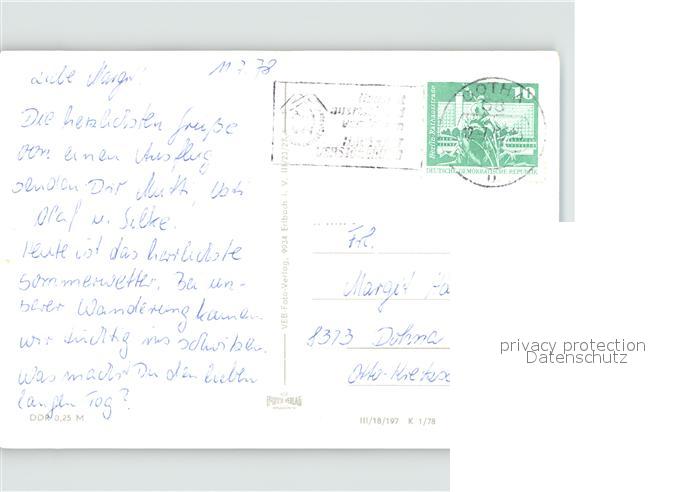 Liebe Margit! 11.7.78
Die herzlichsten Grüße
von einen Ausflug
senden Dir Mutti,
Olaf u. Silke.
Heute ist das herrlichste
Sommerwetter. Bei un-
serer Wanderung kamen
wir tüchtig ins schwitzen.
Was machst Du den lieben
langen Tag?
DDR 0,25 M
VEB Foto-Verlag, 9934 Erlbach i. V.
III/18/197 K 1/78
GOTHA
Berlin, Rathausstraße
DEUTSCHE DEMOKRATISCHE REPUBLIK
Frl.
Margit
8313 Dohna
Otto-
privacy protection
Datenschutz